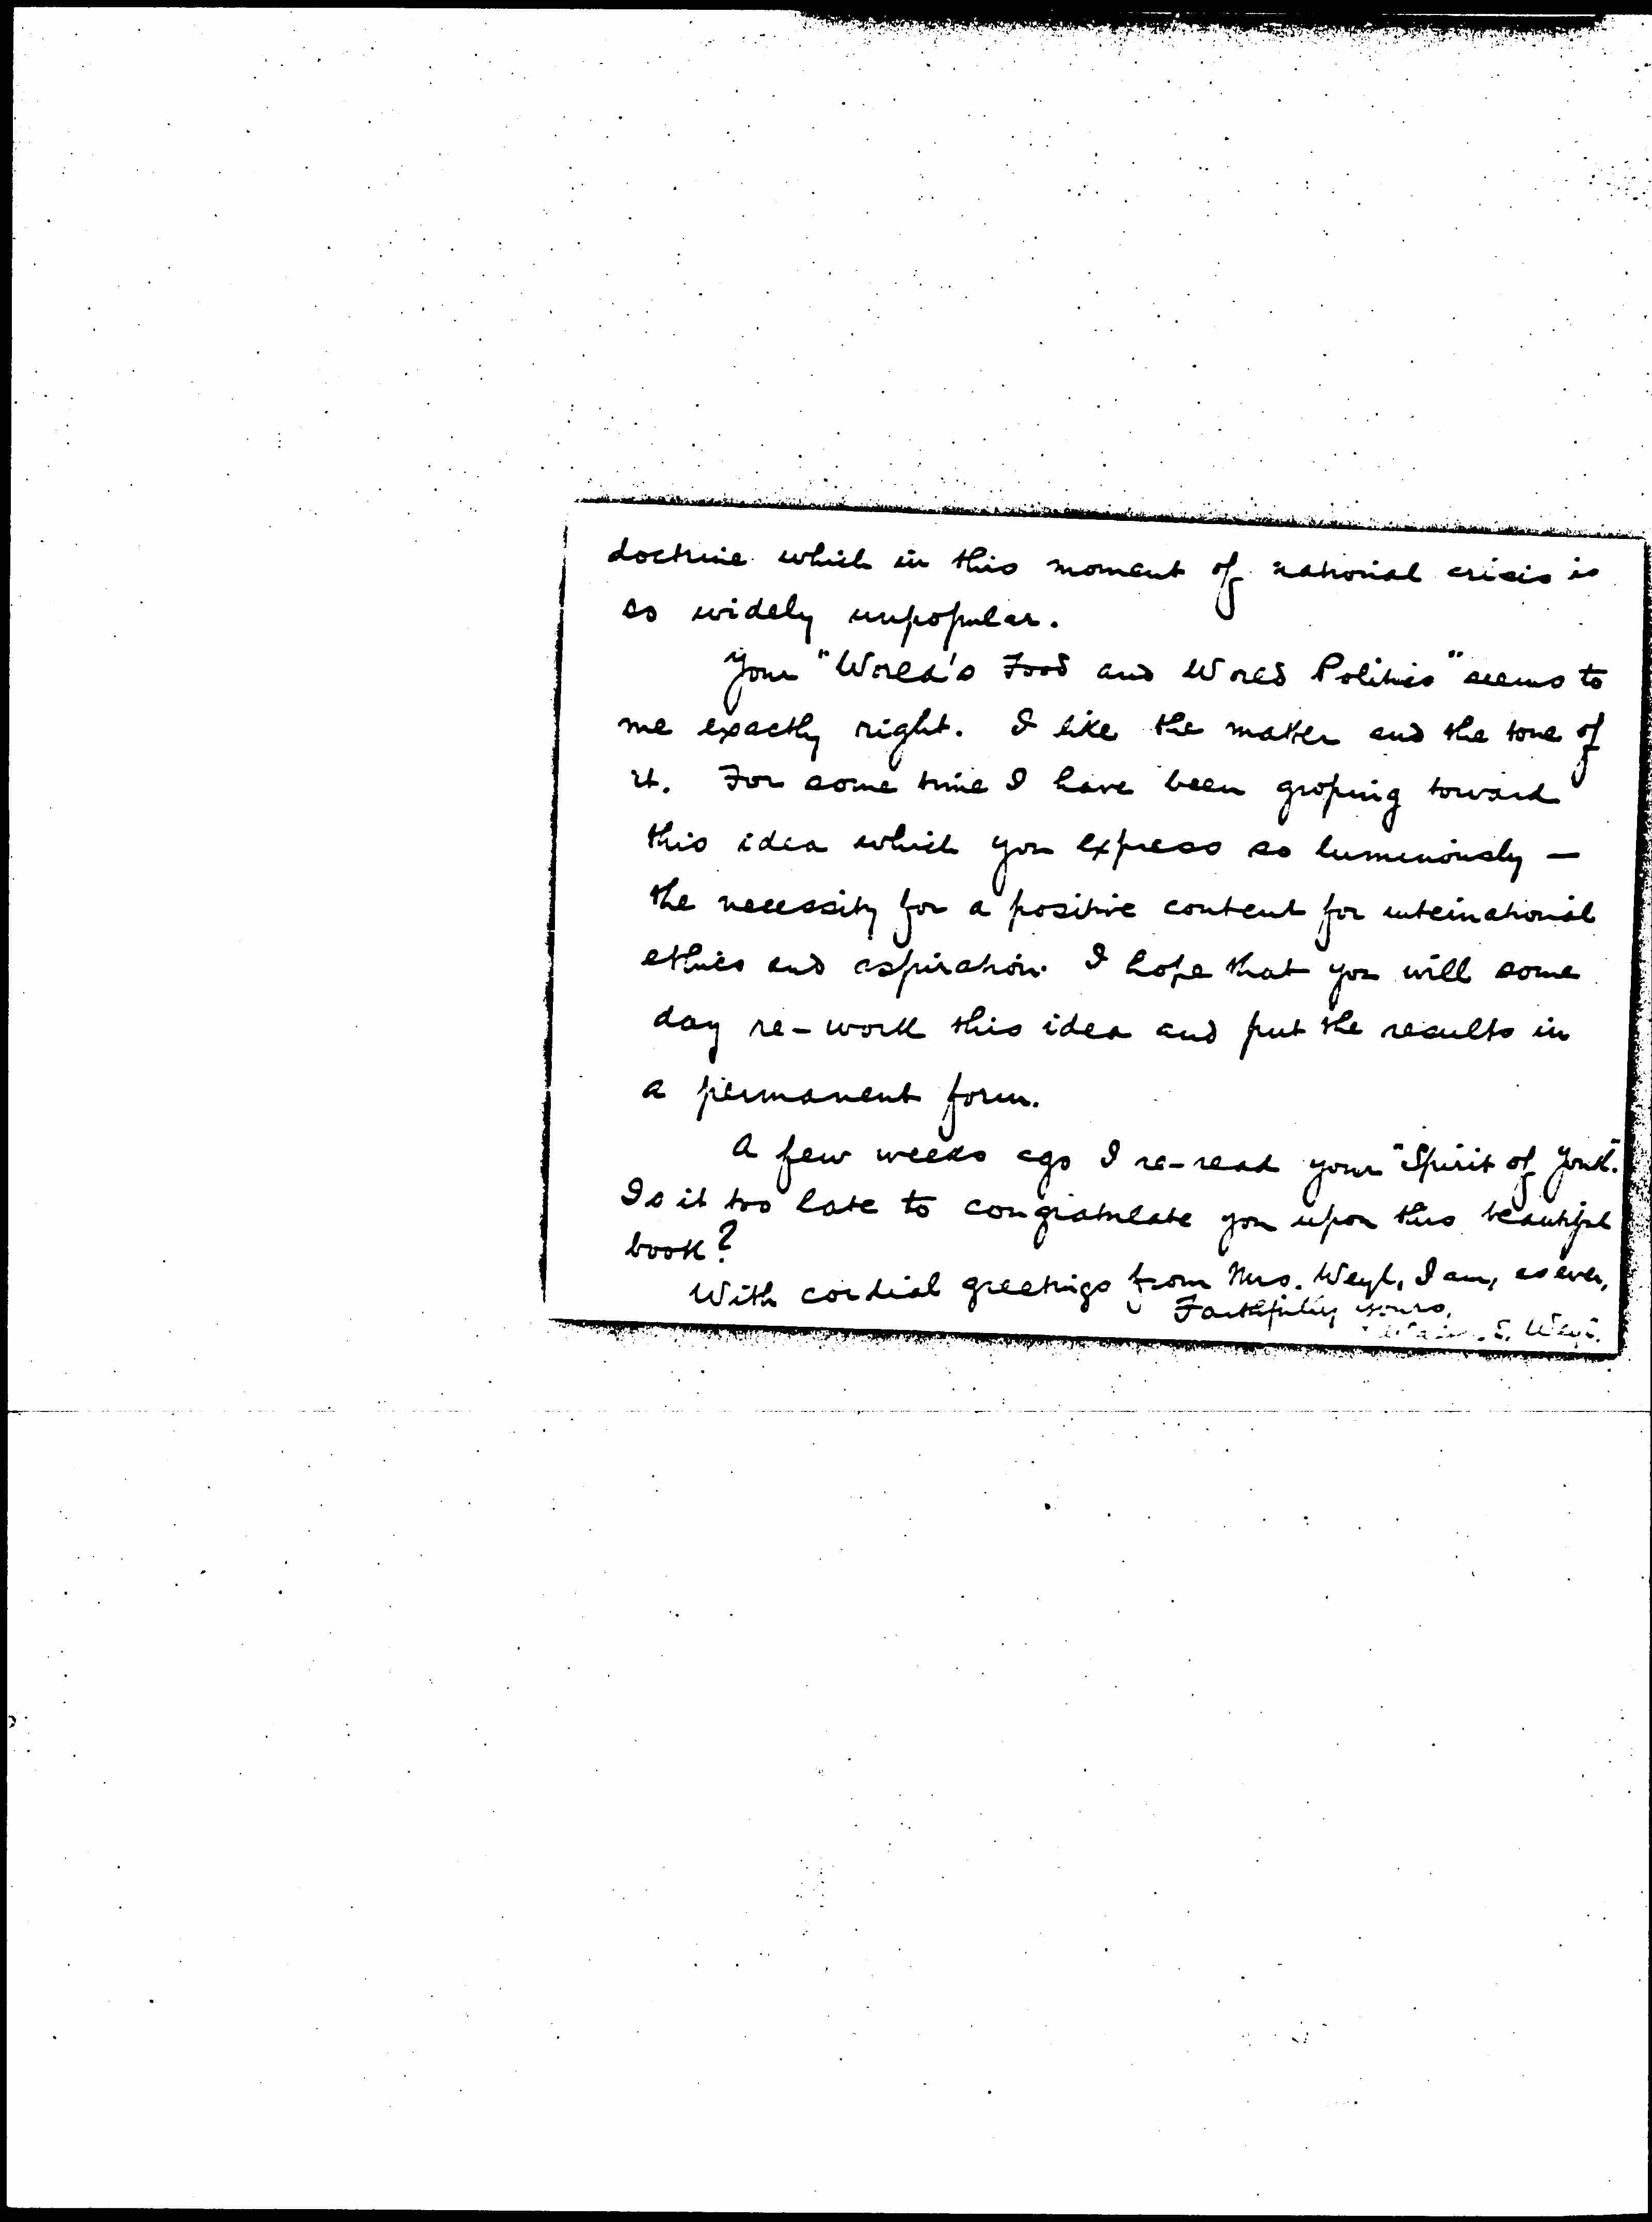 doctrine which in this moment of national crisis is
so widely unpopular.
Your "World's Food and World Politics" seems to
me exactly right. I like the matter and the tone of
it. For some time I have been groping toward
this idea which you express so luminously —
the necessity for a positive content for international
ethics and aspiration. I hope that you will some
day re-work this idea and put the results in
a permanent form.
A few weeks ago I re-read your "Spirit of Youth".
Is it too late to congratulate you upon this beautiful
book?
With cordial greetings from Mrs. Weyl, I am, as ever,
Faithfully yours,
E. Weyl.